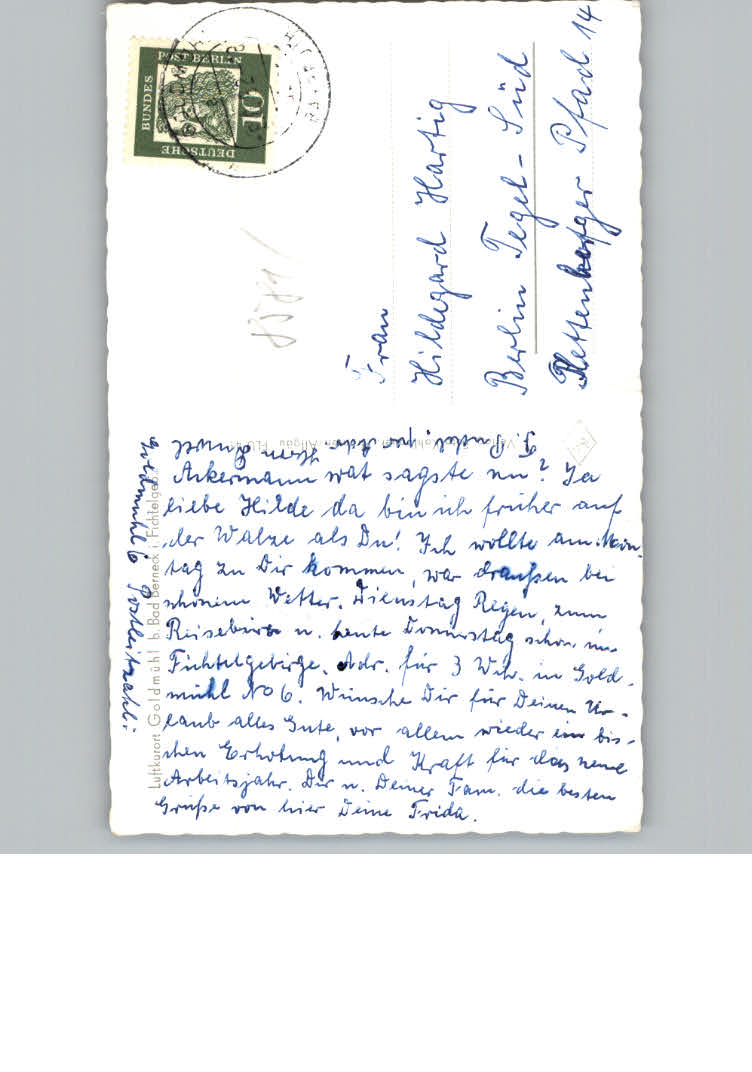 DEUTSCHE
BUNDES
POST BERLIN
10
8581
Frau
Hildegard Hartig
Berlin Tegel-Süd
Pfad 14
F. per Adr. Herrn
Ackermann wat sagste nu? Ja
liebe Hilde da bin ich früher auf
der Walze als Du! Ich wollte am Mon-
tag zu Dir kommen, war draußen bei
schönem Wetter. Dienstag Regen, zum
Reisebüro u. heute Donnerstag schon im
Fichtelgebirge. Adr. für 3 Wch. in Gold-
mühl No 6. Wünsche Dir für Deinen Ur-
laub alles Gute, vor allem wieder ein bis-
chen Erholung und Kraft für das neue
Arbeitsjahr. Dir u. Deiner Fam. die besten
Grüße von hier Deine Frida.
Goldmühl 6 Postleitzahl:
Luftkurort Goldmühl b. Bad Berneck i. Fichtelgeb.